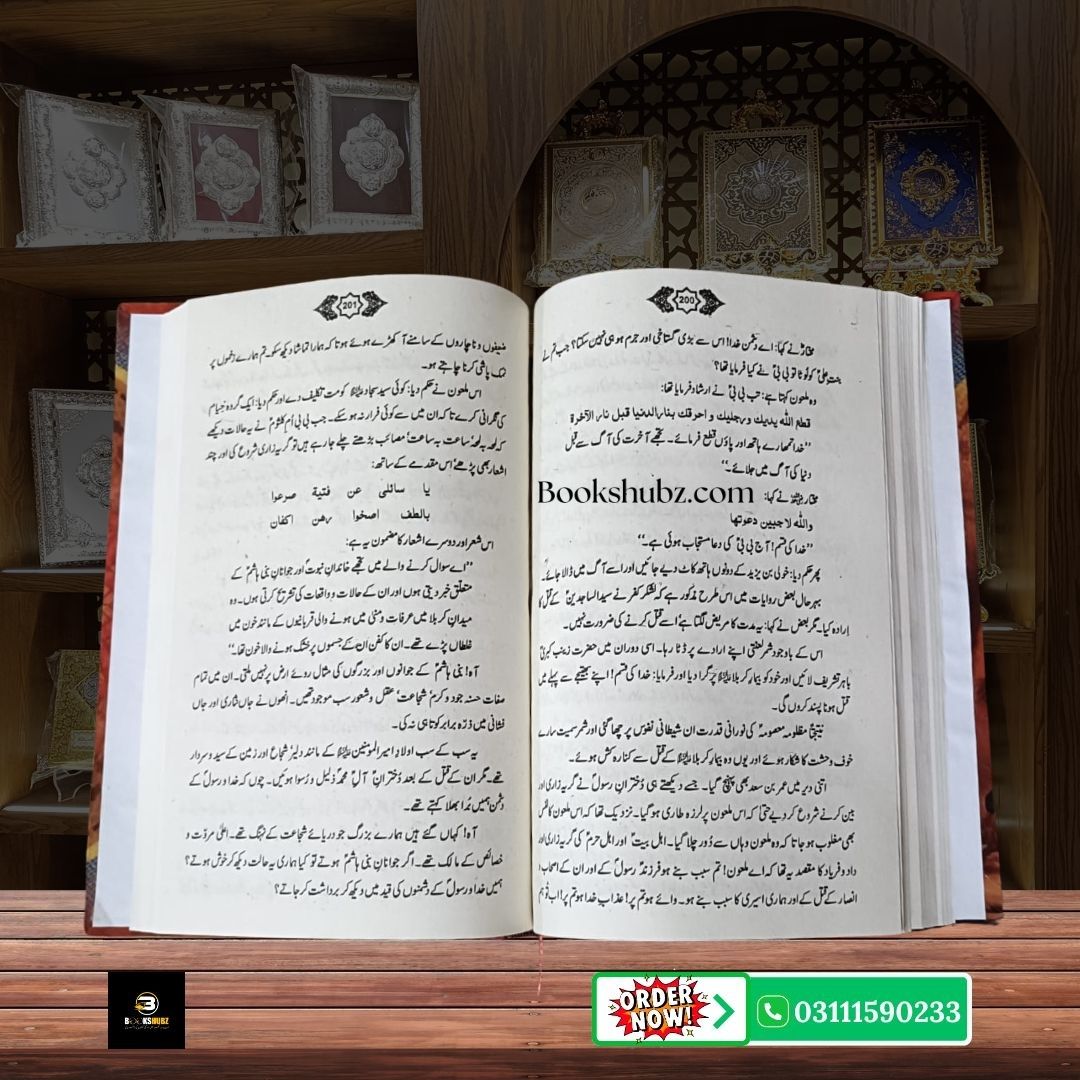 200
مختارؓ نے کہا: اے دشمن خدا! اس سے بڑی گستاخی اور جرم ہو ہی نہیں سکتا؟ جب تم نے
بنت علیؑ کو لوٹا تو بی بیؑ نے کیا فرمایا تھا؟
وہ ملعون کہتا ہے: تب بی بیؑ نے ارشاد فرمایا تھا:
قطع اللّٰه يديك ورجليك و احرقك بنار الدنيا قبل نار الآخرة
”خدا تمھارے ہاتھ اور پاؤں قطع فرمائے۔ تجھے آخرت کی آگ سے قبل
دنیا کی آگ میں جلائے۔“
مختار نے کہا:
واللّٰه لاجيبن دعوتها
”خدا کی قسم! آج بی بیؑ کی دعا مستجاب ہوئی ہے۔“
پھر حکم دیا: خولی بن یزید کے دونوں ہاتھ کاٹ دیے جائیں اور اسے آگ میں ڈالا جائے۔
بہرحال بعض روایات میں اس طرح مذکور ہے کہ لشکر کفر نے سید الساجدینؑ کے قتل کا
ارادہ کیا۔ مگر بعض نے کہا: یہ مدت کا مریض لگتا ہے! اسے قتل کرنے کی ضرورت نہیں۔
اس کے باوجود شمر لعنتی اپنے ارادے پر ڈٹا رہا۔ اسی دوران میں حضرت زینب کبریٰ
باہر تشریف لائیں اور خود کو بیمارِ کربلا پر گرا دیا اور فرمایا: خدا کی قسم! اپنے بھتیجے سے پہلے میں
قتل ہونا پسند کروں گی۔
نتیجتاً مظلومہ معصومہؑ کی نورانی قدرت ان شیطانی نفوس پر چھا گئی اور شمر سمیت سارے
خوف و وحشت کا شکار ہوئے اور یوں وہ بیمارِ کربلا کے قتل سے کنارہ کش ہوئے۔
اتنی دیر میں عمر بن سعد بھی پہنچ گیا۔ جسے دیکھتے ہی دخترانِ رسولؐ نے گریہ زاری اور
بین کرنے شروع کر دیے حتیٰ کہ اس ملعون پر لرزہ طاری ہو گیا۔ نزدیک تھا کہ اس ملعون کا نفس
بھی مغلوب ہو جاتا کہ وہ ملعون وہاں سے دُور چلا گیا۔ اہل بیتؑ اور اہل حرمؑ کی گریہ زاری اور
داد و فریاد کا مقصد یہ تھا کہ اے ملعون! تم سبب بنے ہو فرزندِ رسولؐ کے اور ان کے اصحاب
انصار کے قتل کے اور ہماری اسیری کا سبب بنے ہو۔ وائے ہو تم پر! عذابِ خدا ہو تم پر! اب تُو ہم
201
ضعیفوں و ناچاروں کے سامنے آ کھڑے ہوئے ہو تا کہ ہمارا تماشا دیکھ سکو۔ تم ہمارے زخموں پر
نمک پاشی کرنا چاہتے ہو۔
اس ملعون نے حکم دیا: کوئی سید سجاد کو مت تکلیف دے اور حکم دیا: ایک گروہ خیام
کی نگرانی کرے تا کہ ان میں سے کوئی فرار نہ ہو سکے۔ جب بی بی اُم کلثومؑ نے یہ حالات دیکھے
کہ لمحہ بہ لمحہ، ساعت بہ ساعت، مصائب بڑھتے چلے جا رہے ہیں تو گریہ زاری شروع کی اور چند
اشعار بھی پڑھے، اس مقدمے کے ساتھ:
يا سائلى عن فتية صرعوا
بالطف اضحوا رهن اكفان
اس شعر اور دوسرے اشعار کا مضمون یہ ہے:
”اے سوال کرنے والے میں تجھے خاندانِ نبوت اور جوانانِ بنی ہاشمؑ کے
متعلق خبر دیتی ہوں اور ان کے حالات و واقعات کی تشریح کرتی ہوں۔ وہ
میدانِ کربلا میں عرفات و منیٰ میں ہونے والی قربانیوں کے مانند خون میں
غلطاں پڑے تھے۔ ان کا کفن ان کے جسموں پر خشک ہونے والا خون تھا۔“
آہ! بنی ہاشمؑ کے جوانوں اور بزرگوں کی مثال روئے ارض پر نہیں ملتی۔ ان میں تمام
صفات حسنہ جود و کرم، شجاعت، عقل و شعور سب موجود تھیں۔ انھوں نے جاں نثاری اور جاں
فشانی میں ذرّہ برابر کوتاہی نہ کی۔
یہ سب کے سب اولادِ امیرالمومنین کے مانند دلیر، شجاع اور زمین کے سید و سردار
تھے۔ مگر ان کے قتل کے بعد دُخترانِ آلِ محمدؐ ذلیل و رُسوا ہوئیں۔ چوں کہ خدا و رسولؐ کے
دشمن ہمیں بُرا بھلا کہتے تھے۔
آہ! کہاں گئے ہیں ہمارے بزرگ جو دریائے شجاعت کے نہنگ تھے۔ اعلیٰ مروّت و
خصائص کے مالک تھے۔ اگر جوانانِ بنی ہاشمؑ ہوتے تو کیا ہماری یہ حالت دیکھ کر خوش ہوتے؟
ہمیں خدا و رسولؐ کے دشمنوں کی قید میں دیکھ کر برداشت کر جاتے؟
Bookshubz.com
BOOKSHUBZ
ORDER
NOW!
03111590233